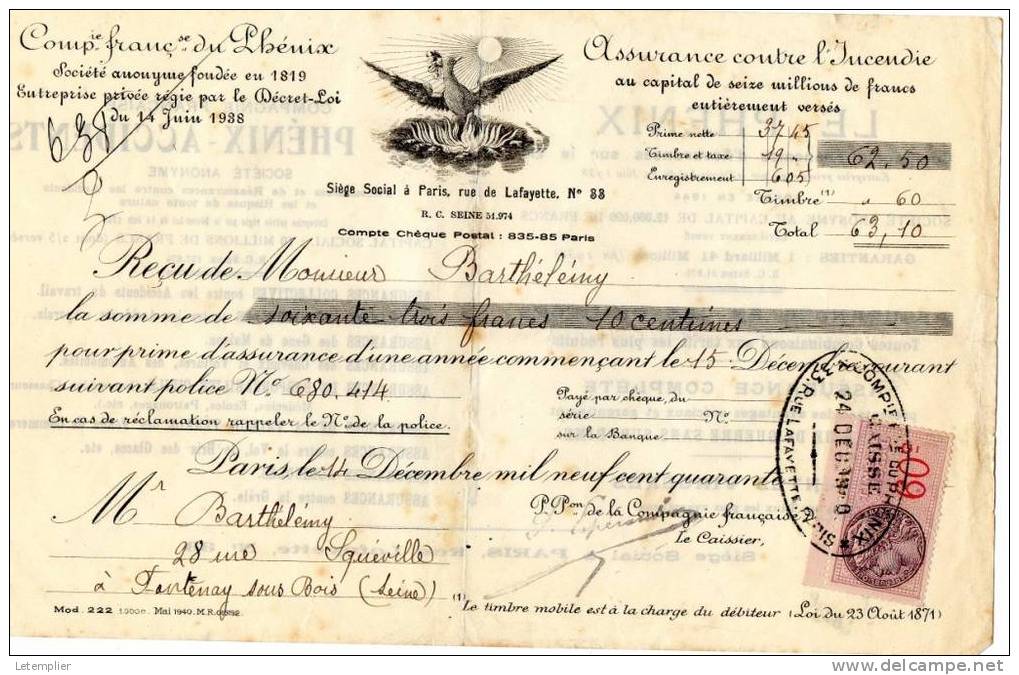 Comp.ie franç.se du Phénix
Société anonyme fondée en 1819
Entreprise privée régie par le Décret-Loi
du 14 Juin 1938
638
Siège Social à Paris, rue de Lafayette. Nº 33
R. C. SEINE 51.974
Compte Chèque Postal : 835-85 Paris
Assurance contre l'Incendie
au capital de seize millions de francs
entièrement versés
Prime nette 37 45
Timbre et taxe 19
Enregistrement 6 05
62.50
Timbre (1) " 60
Total 63,10
Reçu de Monsieur Barthélémy
la somme de soixante trois francs 10 centimes
pour prime d'assurance d'une année commençant le 15 Décembre courant
suivant police Nº 680.414
En cas de réclamation rappeler le Nº de la police.
Payé par chèque, du
série Nº
sur la Banque
Paris, le 14 Décembre mil neuf cent quarante
P. Pon de la Compagnie française
Le Caissier,
Mr Barthélémy
28 rue Squéville
à Fontenay sous Bois (Seine)
(1) Le timbre mobile est à la charge du débiteur (Loi du 23 Août 1871)
Mod. 222 Mai 1940. M.R.
CAISSE
24 DEC
R. RUE LAFAYETTE
Letemplier
delcampe.net